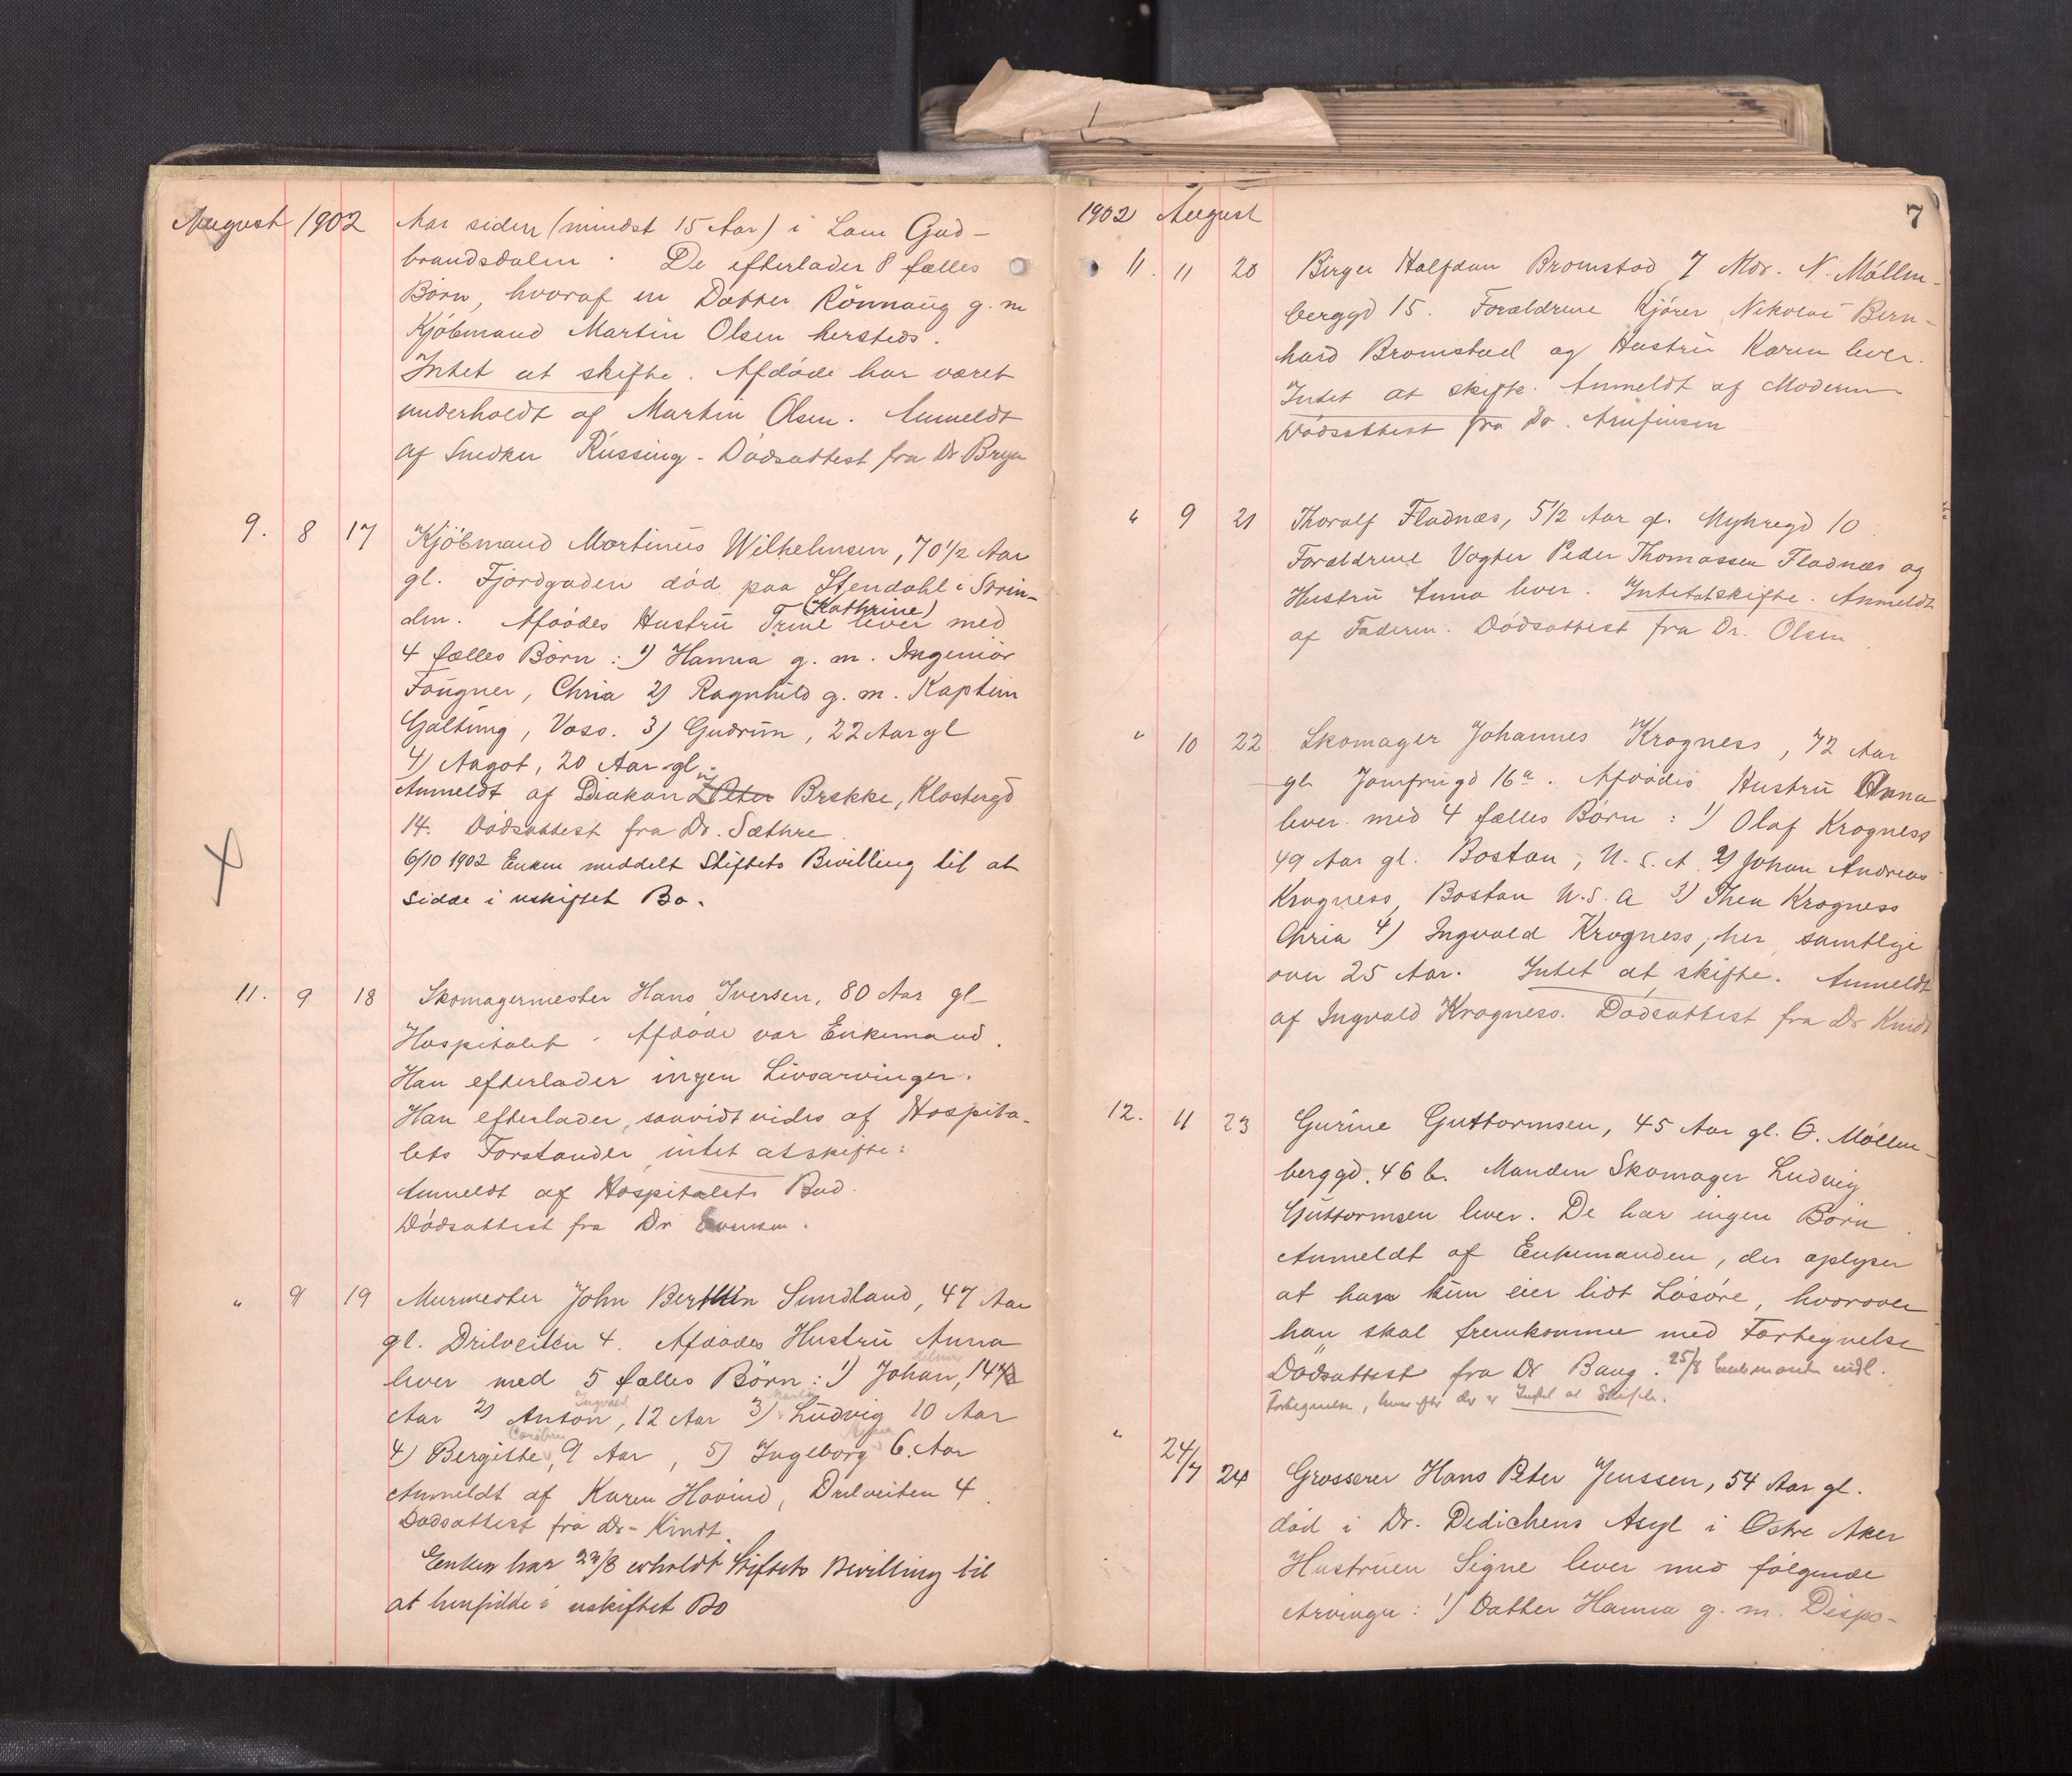 August 1902
Aar siden (mindst 15 Aar) i Lom Gud-
brandsdalen. De efterlader 8 fælles
Børn, hvoraf en Datter Rönnaug g. m
Kjöbmand Martin Olsen hersteds.
Intet at skifte. Afdöde har været
underholdt af Martin Olsen. Anmeldt
af Snedker Russing - Dödsattest fra Dr Bryn
9. 8 17 Kjöbmand Martinus Wilhelmsen, 70 1/2 Aar
gl. Fjordgaden död paa Stendahl i Strin-
(Kathrine)
den. Afdödes Hustru Trine lever med
4 fælles Börn: 1) Hanna g. m. Ingeniör
Fougner, Chria 2) Ragnhild g. m. Kaptein
Galtung, Voss. 3) Gudrun, 22 Aar gl
4) Aagot, 20 Aar gl.
Anmeldt af Diakon Peter Brekke, Klostergd
14. Dödsattest fra Dr. Sæthre.
6/10 1902 Enken meddelt Stiftets Bevilling til at
sidde i uskiftet Bo.
11. 9 18 Skomagermester Hans Iversen, 80 Aar gl
Hospitalet. Afdöde var Enkemand.
Han efterlader ingen Livsarvinger.
Han efterlader, saavidt vides af Hospita-
lets Forstander intet at skifte.
Anmeldt af Hospitalets Bud.
Dödsattest fra Dr
" 9 19 Murmester John Berthin Sundland, 47 Aar
gl. Drilveiten 4. Afdödes Hustru Anna
lever med 5 fælles Børn: 1) Johan, 14
Aar 2) Anton, 12 Aar 3) Ludvig 10 Aar
4) Bergitte, 9 Aar, 5) Ingeborg 6 Aar
Anmeldt af Karen Hovind, Drilveiten 4.
Dødsattest fra Dr. Kindt.
Enken har 23/8 erholdt Stiftets Bevilling til
at hensidde i uskiftet Bo
1902 August 7
11. 11 20 Birger Halfdan Bromstad 7 Mdr. N. Möllen-
berggd 15. Forældrene Kjörer Nikolai Bern-
hard Bromstad og Hustru Karen lever.
Intet at skifte. Anmeldt af Moderen
Dödsattest fra Dr. Arnfinsen
" 9 21 Thoralf Fladnæs, 5 1/2 Aar gl. Myhregd 10.
Forældrene Vogter Peder Thomassen Fladnæs og
Hustru Anna lever. Intet at skifte. Anmeldt
af Faderen. Dödsattest fra Dr. Olsen.
" 10 22 Skomager Johannes Krogness, 72 Aar
gl. Jomfrugd 16a. Afdödes Hustru Anna
lever med 4 fælles Børn: 1) Olaf Krogness
49 Aar gl. Boston, U. S. A 2) Johan Andreas
Krogness, Boston U. S. A 3) Thea Krogness
Chria 4) Ingvald Krogness, her, samtlige
over 25 Aar. Intet at skifte. Anmeldt
af Ingvald Krogness. Dödsattest fra Dr Kindt
12. 11 23 Gurine Guttormsen, 45 Aar gl. Ö. Möllen-
berggd. 46 b. Manden Skomager Ludvig
Guttormsen lever. De har ingen Børn.
Anmeldt af Enkemanden, der oplyser
at han kun eier lidt Lösöre, hvorover
han skal fremkomme med Fortegnelse
Dödsattest fra Dr Baug. 25/8 Enkemanden indl.
Fortegnelse, hvorefter der er Intet at Skifte.
" 24/7 24 Grosserer Hans Peter Jenssen, 54 Aar gl.
död i Dr. Dedichens Asyl i Östre Aker
Hustruen Signe lever med fölgende
Arvinger: 1) Datter Hanna g. m. Dispo-